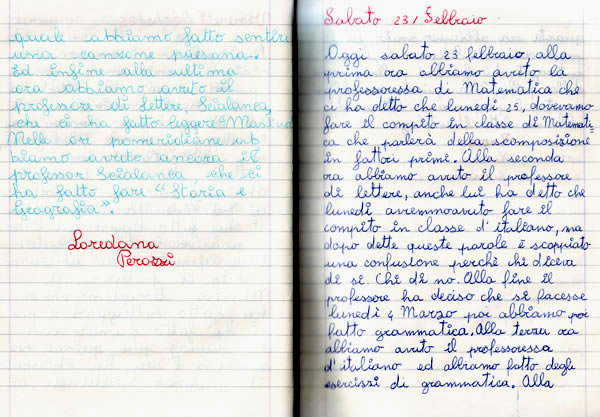 quali abbiamo fatto sentire
una canzone pisesana.
Ed infine alla ultima
ora abbiamo avuto il
professore di lettere, Scialanca,
che ci ha fatto liggere
Nelle ore pomeridiane ab
biamo avuto ancora il
professor Scialanca che ci
ha fatto fare "Storia e
Geografia".
Loredana
Perozzi
Sabato 23/Febbraio
Oggi sabato 23 febbraio, alla
prima ora abbiamo avuto la
professoressa di Matematica che
ci ha detto che lunedì 25, dovevamo
fare il compito in classe di Matemati=
ca che parlerà della scomposizione
in fattori primi. Alla seconda
ora abbiamo avuto il professore
di lettere, anche lui ha detto che
lunedì avremmo avuto fare il
compito in classe d'italiano, ma
dopo dette queste parole è scoppiato
una confusione perchè chi diceva
di sì. Chi di no. Alla fine il
professore ha deciso che si facesse
lunedì 4 Marzo poi abbiamo poi
fatto grammatica. Alla terza ora
abbiamo avuto il professoressa
d'italiano ed abbiamo fatto degli
esercizzi di grammatica. Alla